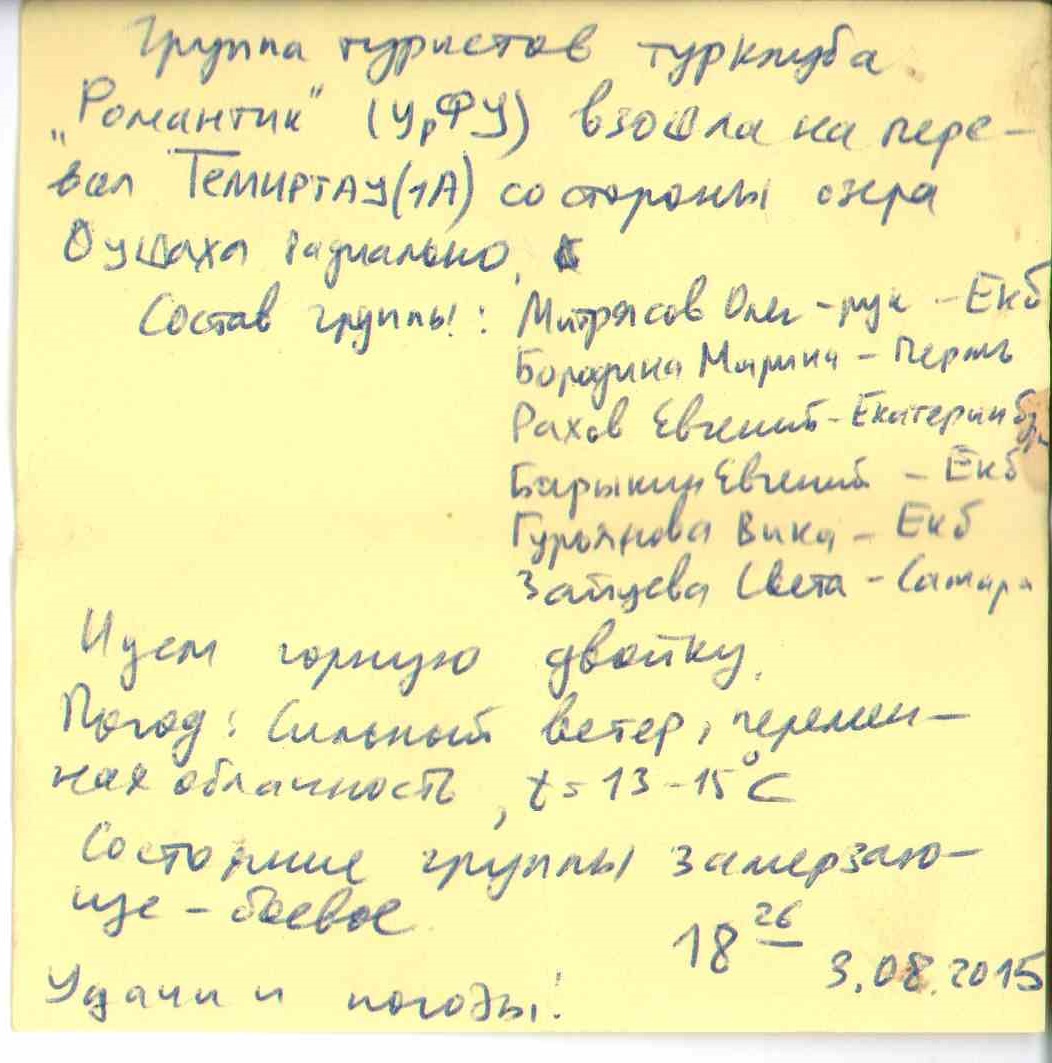 Группа туристов турклуба
"Романтик" (УрФУ) взошла на пере-
вал Темиртау (1А) со стороны озера
Оушаха радиально.
Состав группы: Митрясов Олег - рук - Екб
Бородина Марина - Пермь
Рахов Евгений - Екатеринбург
Барыкин Евгений - Екб
Гурьянова Вика - Екб
Зайцева Света - Самара
Идем горную двойку.
Погод: Сильный ветер, перемен-
ная облачность, t = 13-15°C
Состояние группы замерзаю-
ще - боевое
18 26
3.08.2015
Удачи и погоды!